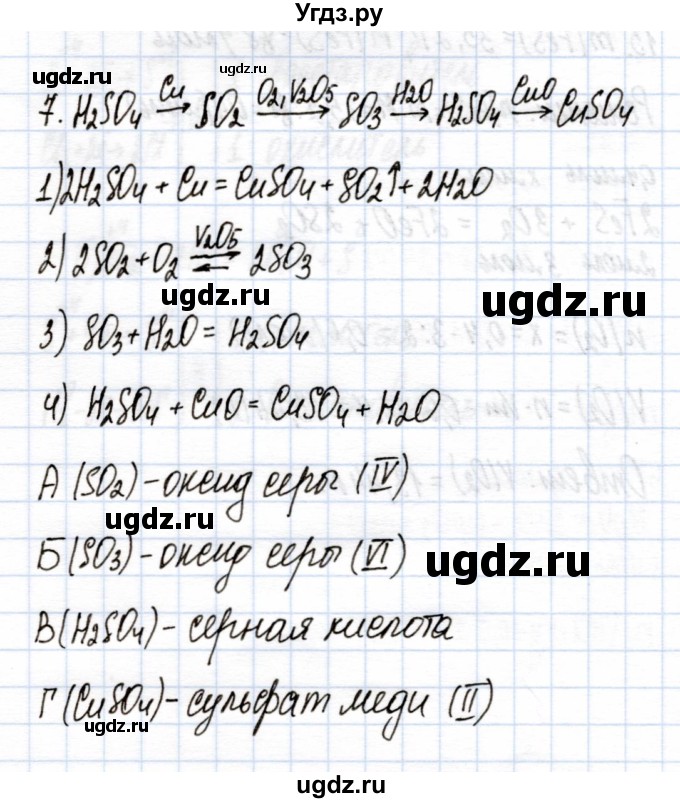 Угдз.ру
ugdz.ru ugdz.ru
7. H2SO4 →(Cu) SO2 →(O2, V2O5) SO3 →(H2O) H2SO4 →(CuO) CuSO4
1) 2H2SO4 + Cu = CuSO4 + SO2↑ + 2H2O
2) 2SO2 + O2 ⇌(V2O5) 2SO3
ugdz.ru ugdz.ru
3) SO3 + H2O = H2SO4
4) H2SO4 + CuO = CuSO4 + H2O
А (SO2) - оксид серы (IV)
ugdz.ru
Б (SO3) - оксид серы (VI)
ugdz.ru
В (H2SO4) - серная кислота
Г (CuSO4) - сульфат меди (II)
ugdz.ru ugdz.ru
ugdz.ru